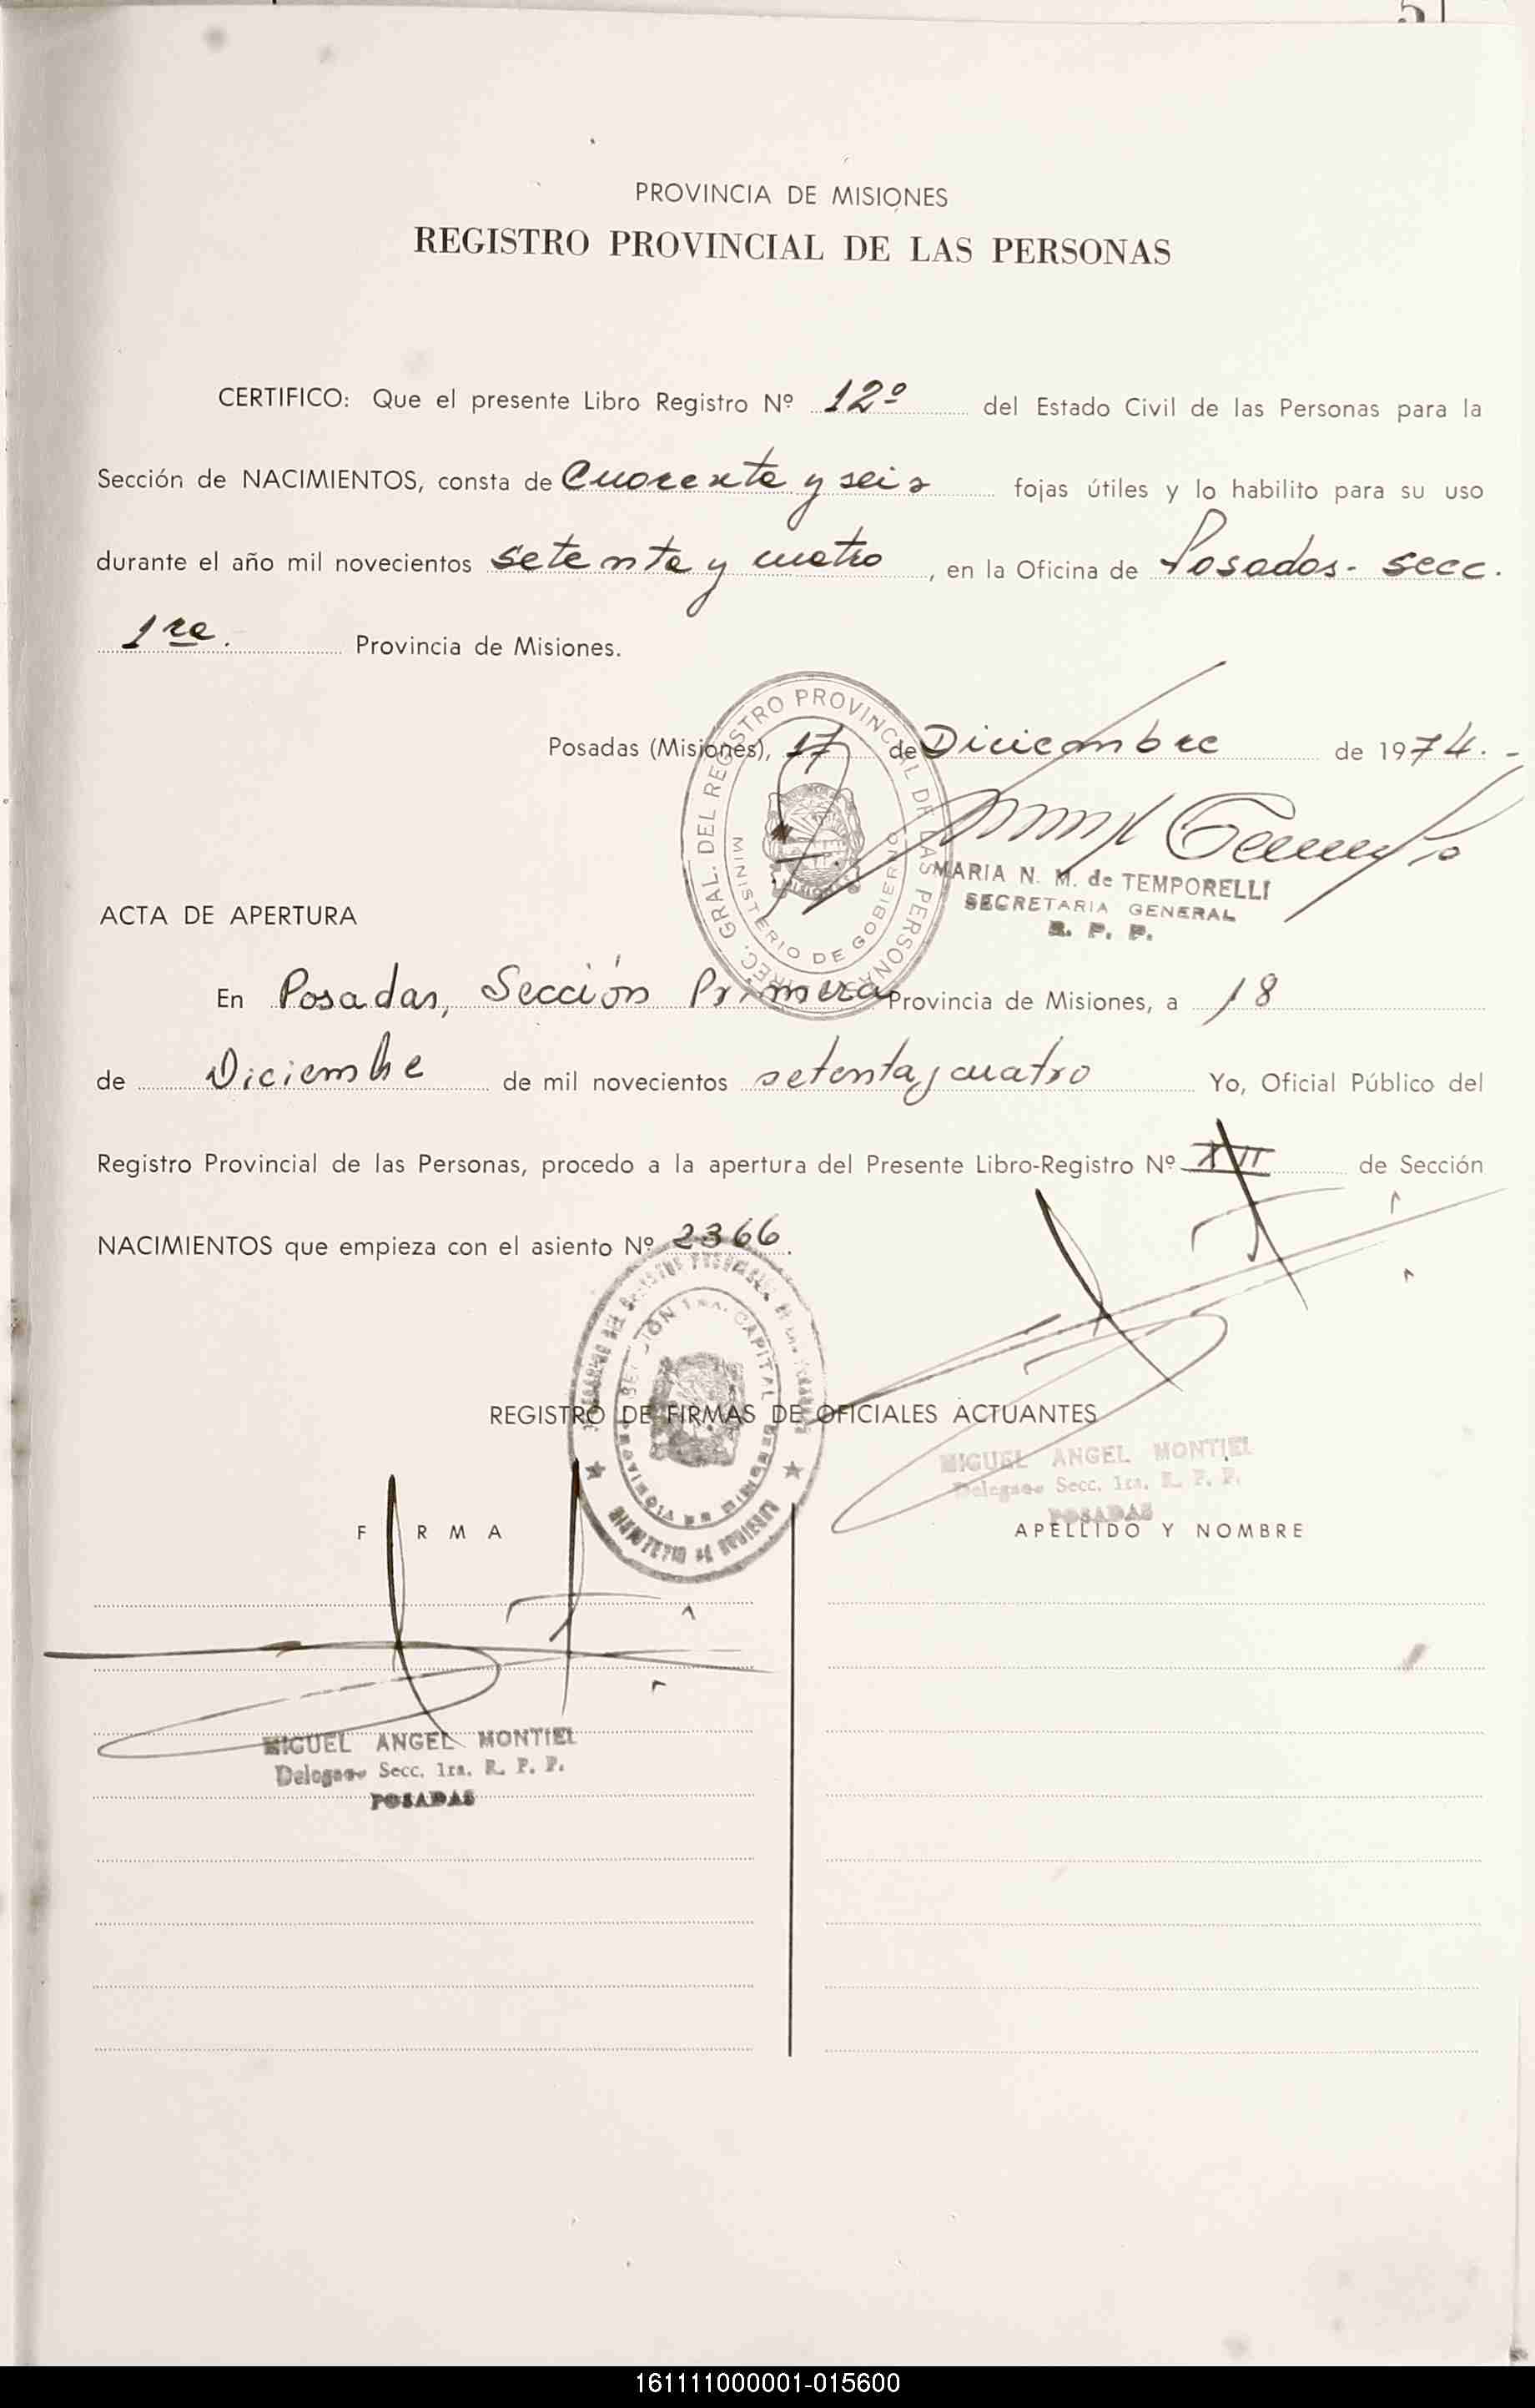 51
PROVINCIA DE MISIONES
REGISTRO PROVINCIAL DE LAS PERSONAS
CERTIFICO: Que el presente Libro Registro Nº 12º del Estado Civil de las Personas para la
Sección de NACIMIENTOS, consta de Cuarenta y seis fojas útiles y lo habilito para su uso
durante el año mil novecientos setenta y cuatro, en la Oficina de Posadas - secc.
1ra. Provincia de Misiones.
Posadas (Misiones), 17 de Diciembre de 1974.-
DIREC. GRAL. DEL REGISTRO PROVINCIAL DE LAS PERSONAS
MINISTERIO DE GOBIERNO
MARIA N. M. de TEMPORELLI
SECRETARIA GENERAL
R. P. P.
ACTA DE APERTURA
En Posadas, Sección Primera Provincia de Misiones, a 18
de Diciembre de mil novecientos setenta y cuatro Yo, Oficial Público del
Registro Provincial de las Personas, procedo a la apertura del Presente Libro-Registro Nº XII de Sección
NACIMIENTOS que empieza con el asiento Nº 2366.
SECCION 1ra. CAPITAL
PROVINCIA DE MISIONES
MINISTERIO DE GOBIERNO
REGISTRO DE FIRMAS DE OFICIALES ACTUANTES
MIGUEL ANGEL MONTIEL
Delegado Secc. 1ra. R. P. P.
POSADAS
FIRMA APELLIDO Y NOMBRE
MIGUEL ANGEL MONTIEL
Delegado Secc. 1ra. R. P. P.
POSADAS
161111000001-015600